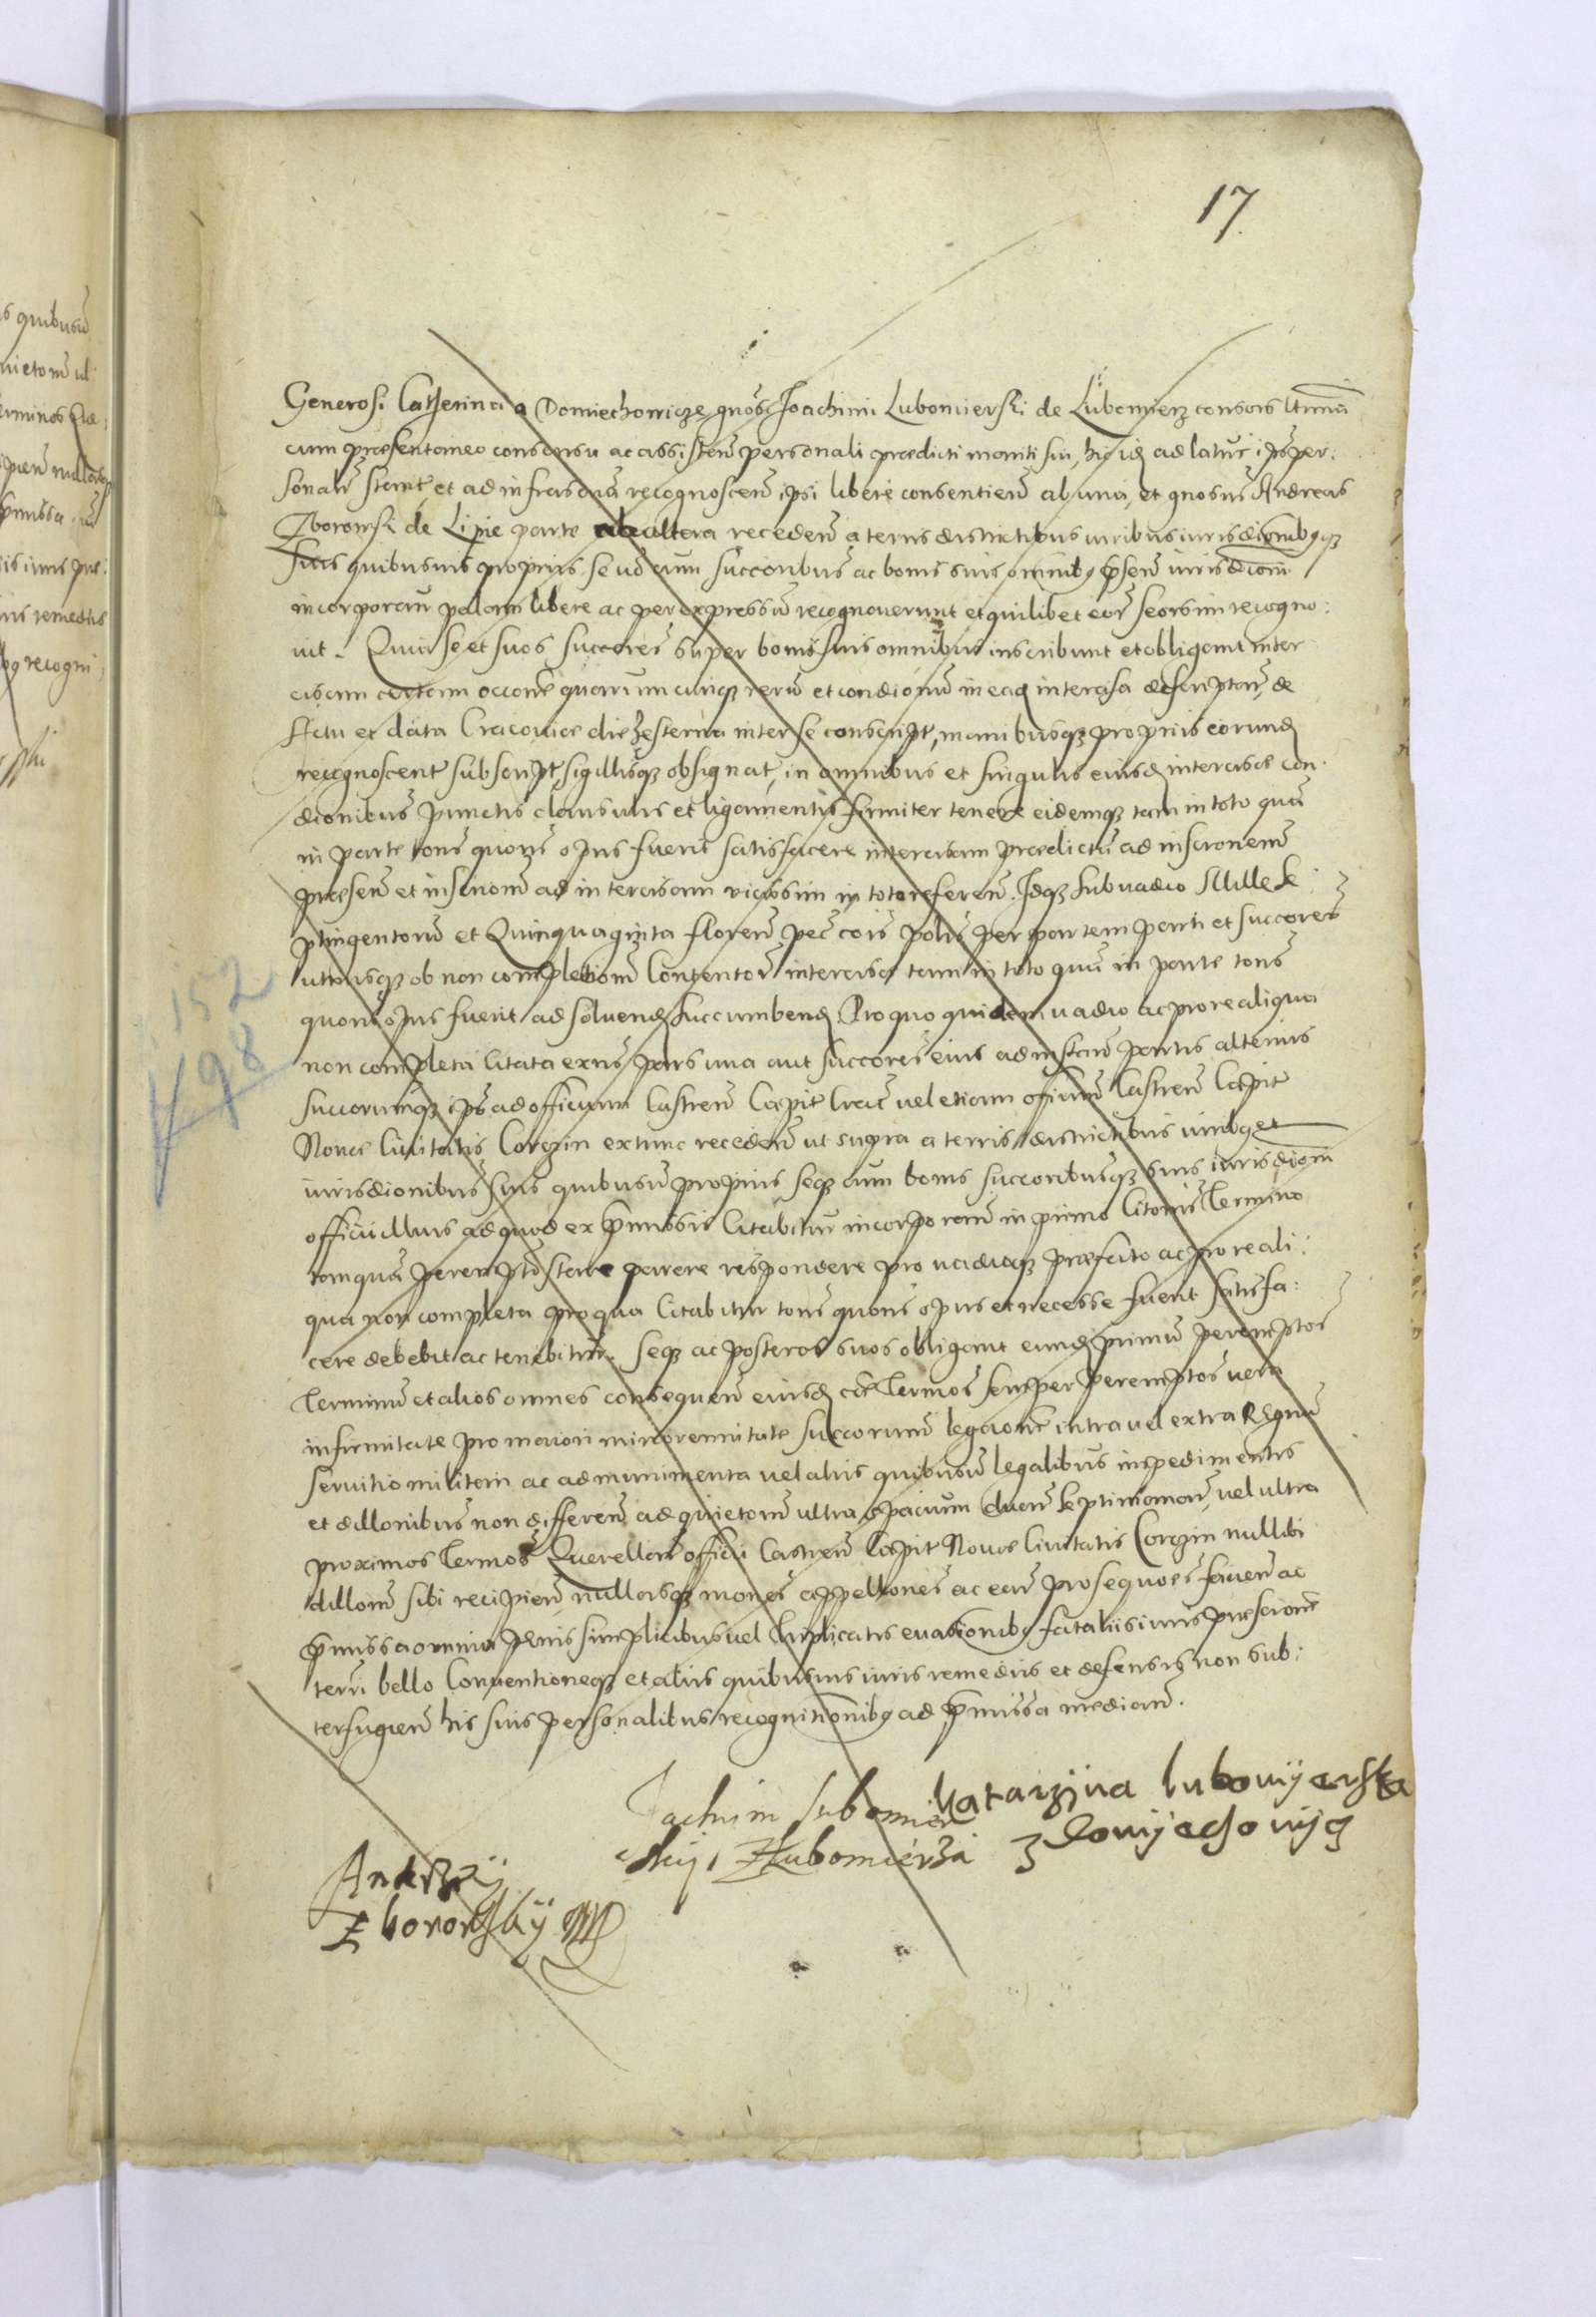 17
Generosi Catherina a Domiechowicze gnosi Joachimi Lubomierski de Lubomierz consors ltima
cum præsentaneo consensu ac assisten personali prædicti mariti sui, hic id ad latus ips per:
sonalr stante et ad infrascrta recognoscen ipsi libere consentien ab una, et gnosus Andreas
Zborowski de Lipie parte ab altera receden a terris districtibus iuribus iurisdictionibusq
suis quibusuis proprijs se uo cum succoribus ac bonis suis omnibus psen iurisdictioni
incorporan palam libere ac per expressum recognouerunt et quilibet eor seorsim recogno:
uit. Quia se et suos succores super bonis suis omnibus inscribunt et obligant inter
cisam certam occone quarumcunq rerum et condicionum in ead intercisa descriptar, de
Actu et data Cracouiæ die hesterna inter se conscript, manibusq proprijs eorund
recognoscent subscript, sigillisq obsignat, in omnibus et singulis eiusd intercisæ con:
dicionibus punctis clausulis et ligamentis firmiter tenere eidemq tam in toto qua
in parte tons quoris opus fuerit satisfacere intercisam prædictam ad inscronem
præsen et inscronem ad intercisam vicissim in toto referen. Idq sub vadio Mille Se:
ptingentoru et Quinquaginta floren pec cois polis per partem parti et succores
utriusq ob non completiom Contentor intercisæ tam in toto qua in parte tons
quoris opus fuerit ad soluend succumbend. Pro quo quidem uadio ac pro re aliqua
non completa citata exns pars una aut succores eius ad instan partis alterius
succorumq ips ad officium Castren Capit Crac uel etiam offium Castren Capit
Nouæ Ciuitatis Corczin extunc receden ut supra a terris districtibus iuribq et
iurisdionibus suis quibusuis proprijs seq cum bonis succoribusq suis iurisdioni
officii illius ad quod ex pmissis citabitur incorporan in primo Citonis Termino
tamqua perempto stare parere respondere pro uadioq præfato ac pro re ali:
qua non completa pro qua citabitur tons quoris opus et necesse fuerit satisfa:
cere debebit ac tenebitur. Seq ac posteros suos obligant eund primu perempto
Terminu et alios omnes consequen eiusd Termos semper peremptos vera
infirmitate pro maiori minorennitate succorum legacione intra uel extra Regnu
seruitio militari ac ad munimenta uel alijs quibusuis legalibus inpedimentis
et dillonibus non differen ad quietom ultra spacium duar septimanar, uel ultra
proximos Termos Querellar officii Castren Capit Nouæ Ciuitatis Corczin nullibi
dillom sibi recipien, nullasq mones appellones ac ear prosequoes facien ac
pmissa omnia penis simplicibus uel triplicatis euasionibq fatalijs iuris præscrione
terri bello Conuentioneq et alijs quibusuis iuris remedijs et defensis non sub:
terfugien his suis personalibus recognitionibq ad pmissa median.
152
98
Jachim Lubomier
skij z Lubomierza
Katarzijna lubomijerska
z Domijechowijcz
Andrzeij
Zborowskij